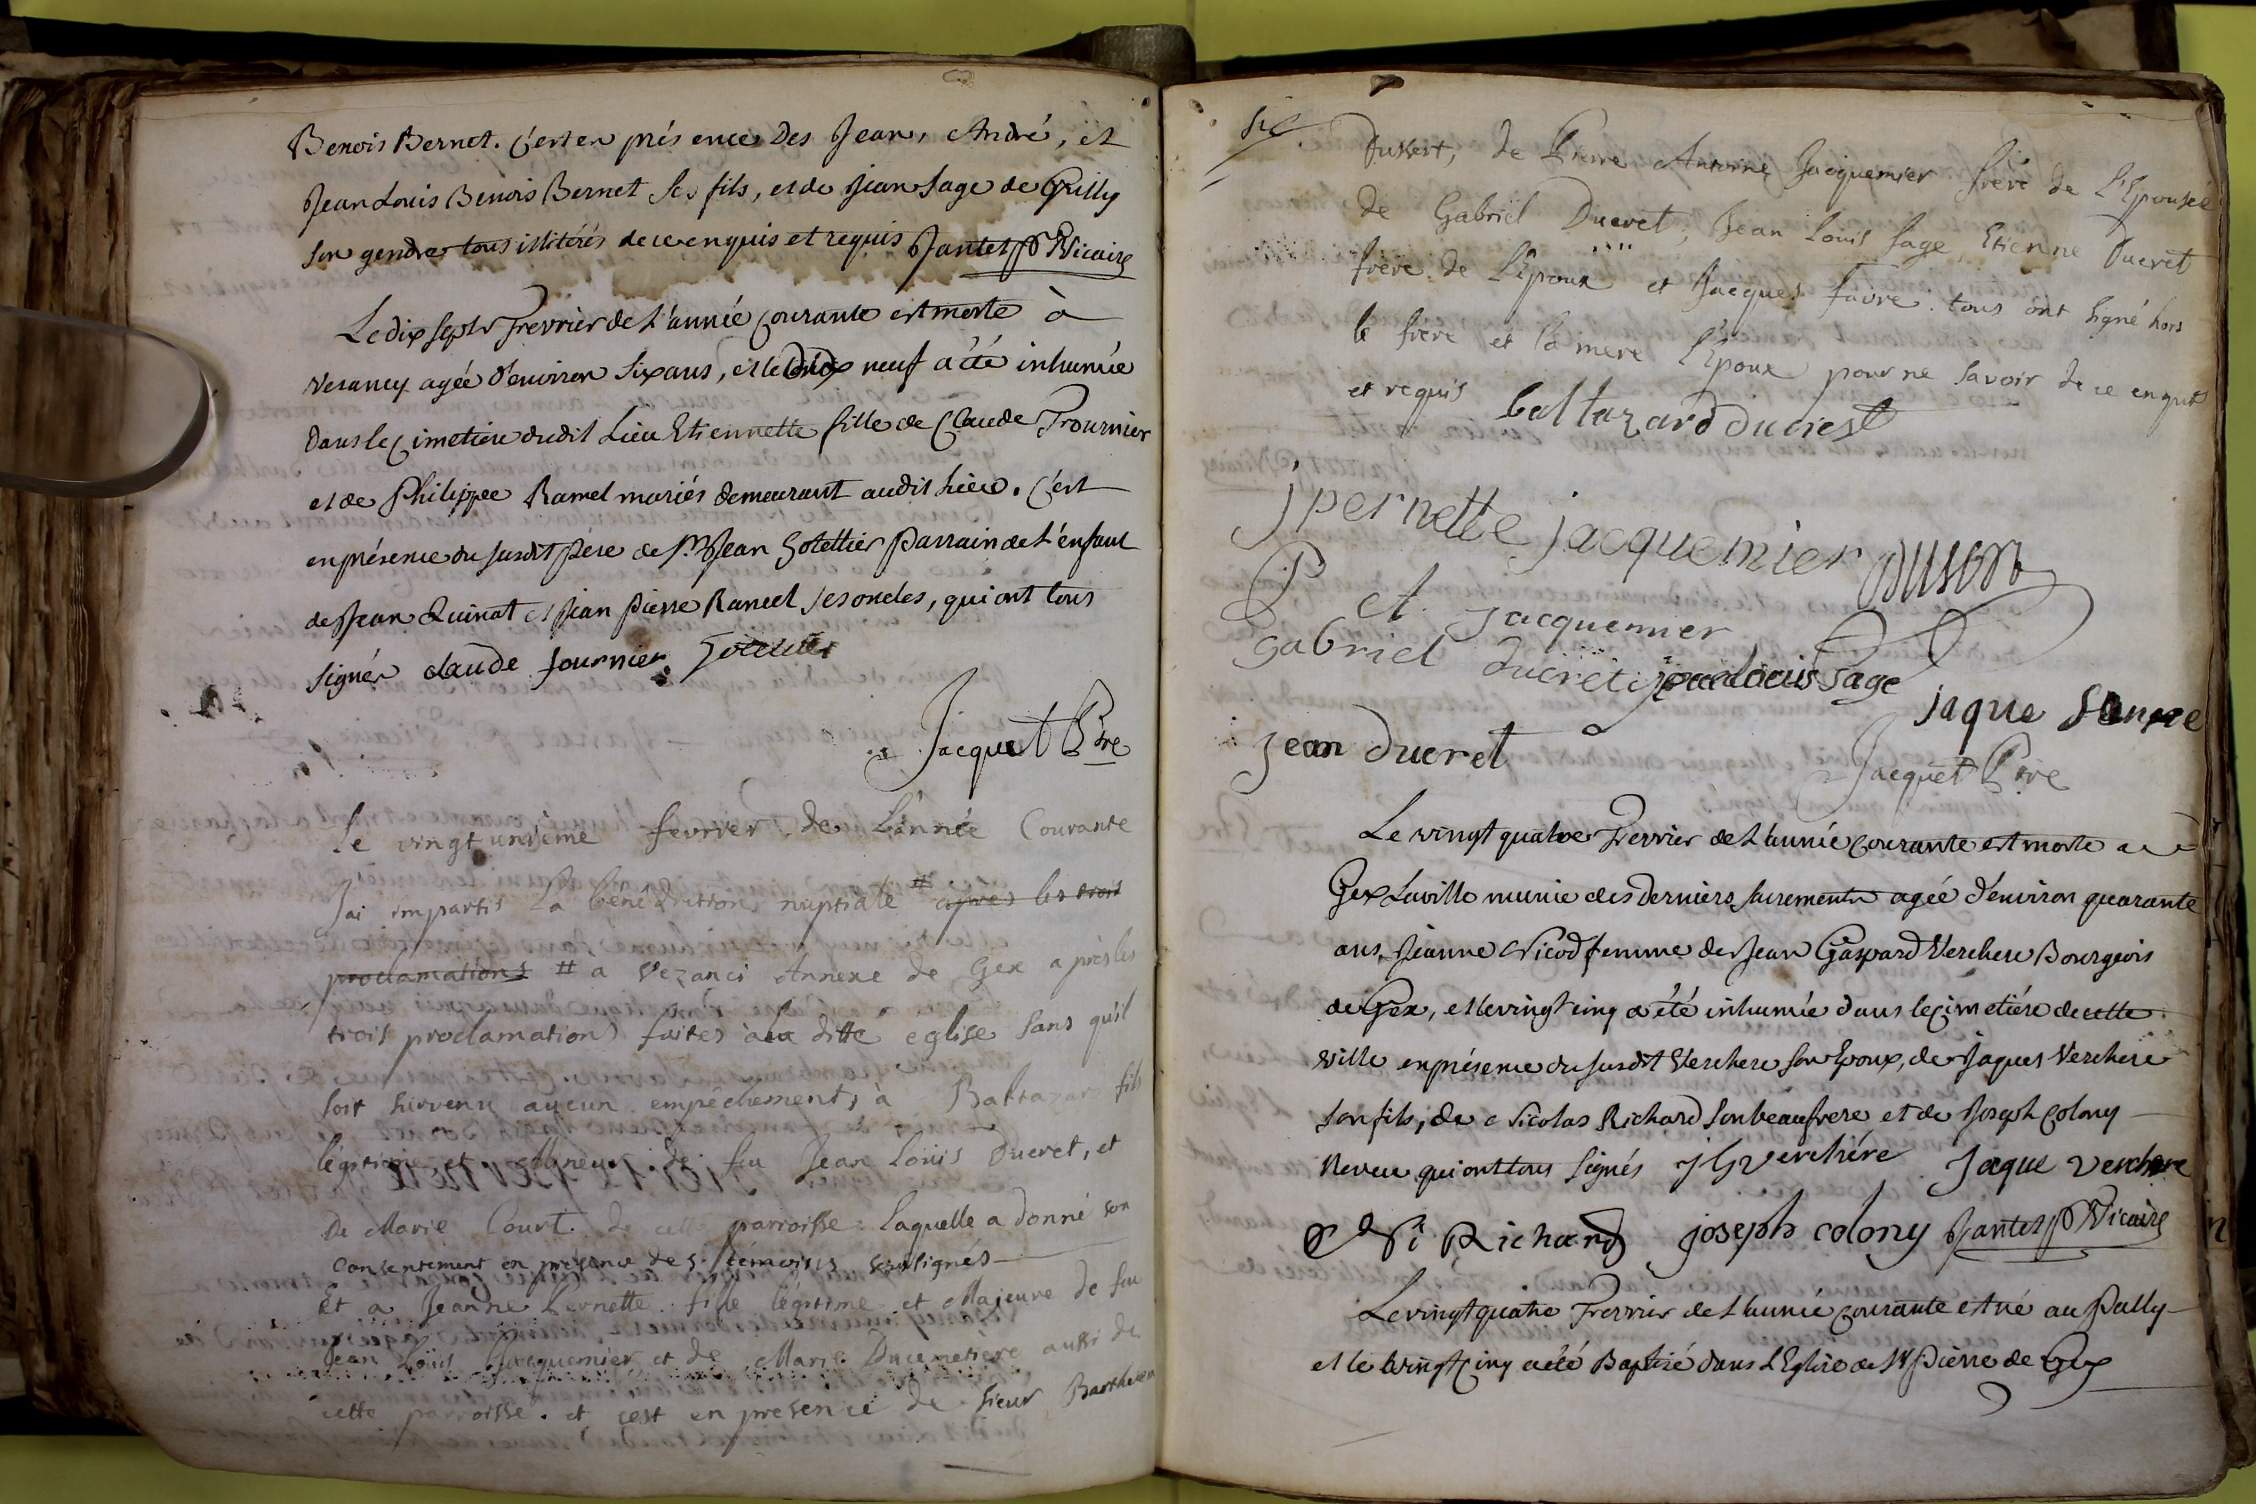 Benois Bernet. C'est en présence des Jean, André, et
Jean Louis Benois Bernet ses fils, et de Jean Sage de Grilly
son gendre tous illitérés de ce enquis et requis Jantet p Vicaire
Le dix sept Fevrier de l'année courante est morte à
Vesancy agée d'environ six ans, et le dix neuf a été inhumée
dans le cimetiere dudit Lieu Etiennette fille de Claude Fournier
et de Philippee Ramel mariés demeurant audit Lieu. C'est
en présence du susdit Père de Sr Jean Gotettier Parrain de l'enfant
de Jean Quinat et Jean Pierre Ramel ses oncles, qui ont tous
signés claude fournier
Jacquet Ptre
Le vingt unième fevrier de L'année Courante
J'ai imparti La bénédiction nuptiale # après les trois
proclamations # a Vezanci Annexe de Gex après les
trois proclamations faites à la ditte eglise sans qu'il
soit survenu aucun empêchements à Baltazar fils
légitime et Mineur de feu Jean Loüis Ducret, et
De Marie Court de cette parroisse laquelle a donné son
consentement en presence des témoins soussignés
Et a Jeanne Pernette fille légitime et Majeure de feu
Jean Loüis Jacquemier et de Marie Ducimetiere aussi de
cette parroisse. et c'est en presence de sieur Barthelemi
six
Dussert, de Pierre Antoine Jacquemier frère de L'Epousée
de Gabriel Ducret, Jean Louis Sage, Etienne Ducret
frère de L'Epoux et Jacques favre. tous ont signé hors
le frère et la mere L'Epoux pour ne savoir de ce enquis
et requis baltazard ducret
j pernette jacquemier
P at jacquemier
gabriel ducret jean louis Sage
jaque
jean ducret
Jacquet Ptre
Le vingt quatre Fevrier de L'année courante est morte a
Gex La ville munie des derniers sacrements agée d'environ quarante
ans, Jeanne Nicod femme de Jean Gaspard Verchere Bourgeois
de Gex, et le vingt cinq a été inhumée dans le cimetière de cette
ville en présence du susdit Verchere son Epoux, de Jaques Verchere
son fils, de Nicolas Richard son beaufrere et de Joseph Colony
neveu qui ont tous signés J G verchére Jaque verchere
Ni Richard joseph colony Jantet p Vicaire
Le vingt quatre Fevrier de L'année courante est né au Pally
et le vingt cinq a été Baptisé dans L'Eglise de St Pierre de Gex